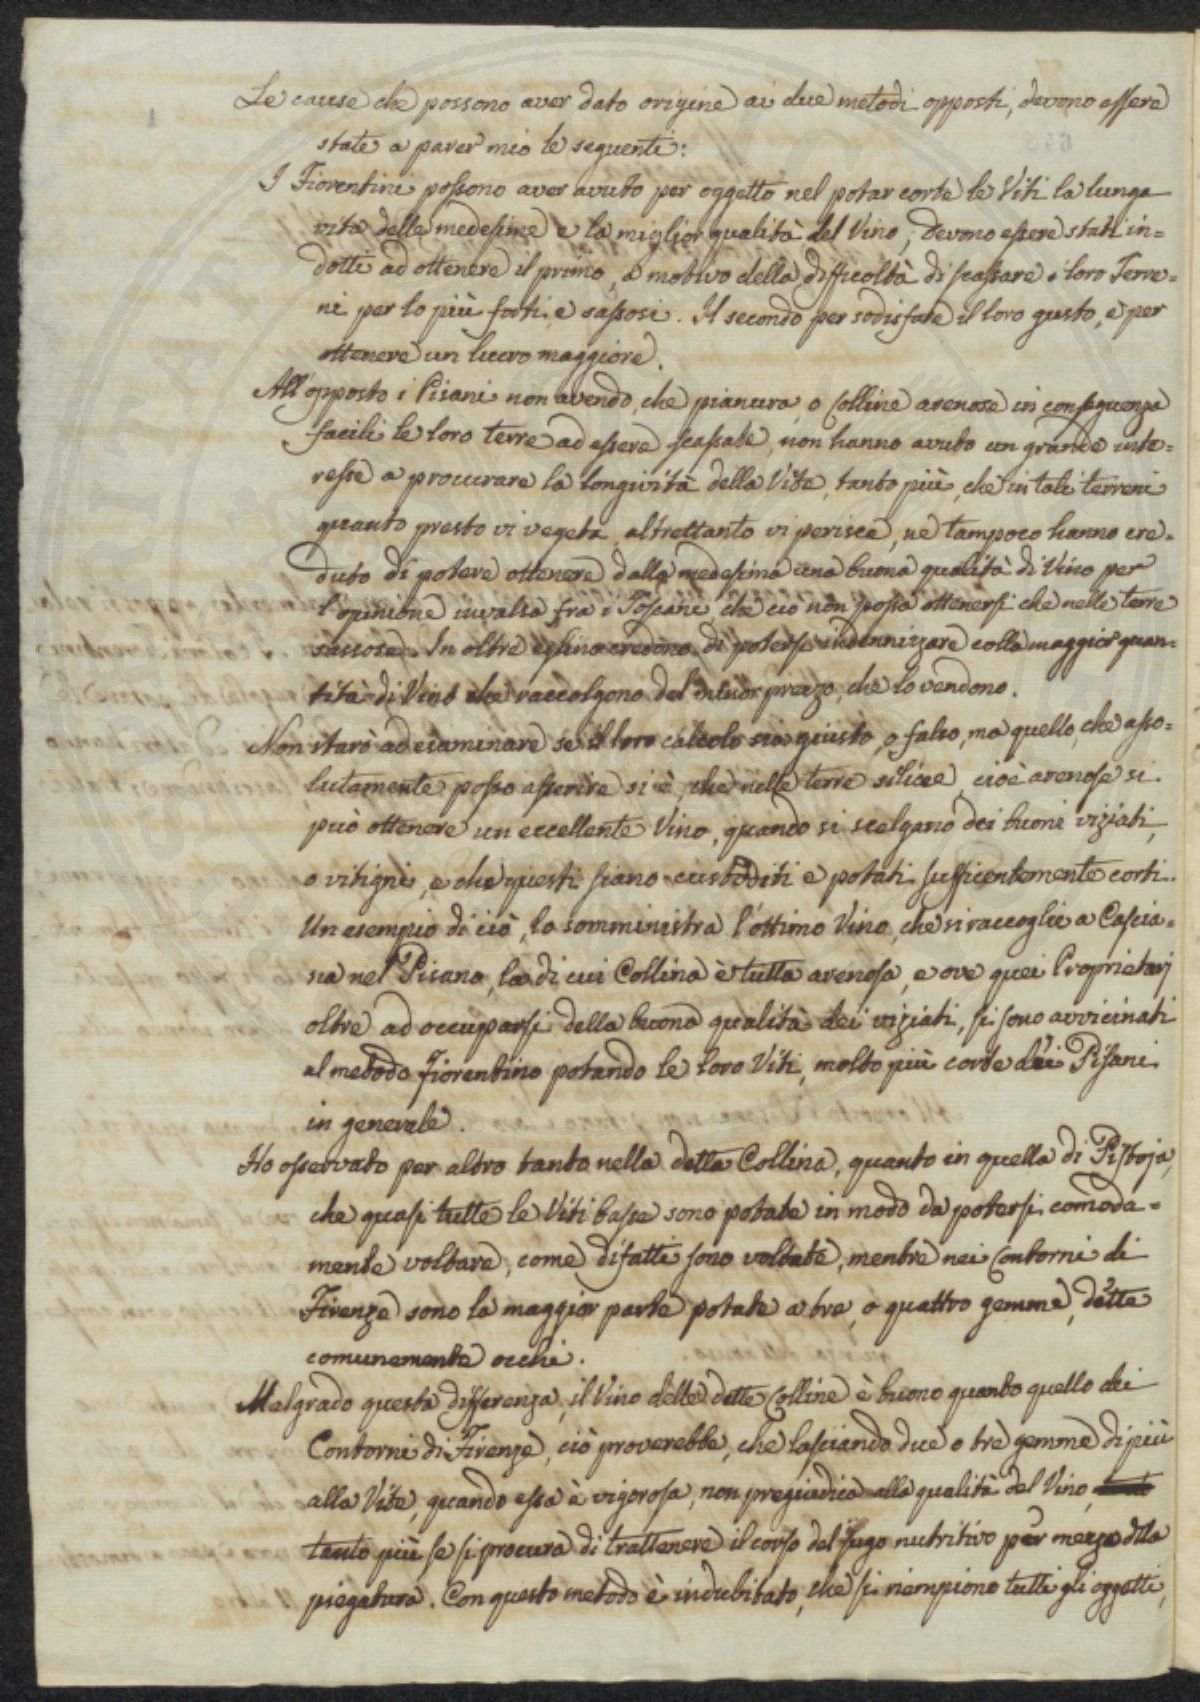 Le cause che possono aver dato origine ai due metodi opposti, devono essere
state a parer mio le seguenti:
I Fiorentini possono aver avuto per oggetto nel potar corte le Viti la lunga
vita delle medesime e la miglior qualità del Vino; devono essere stati in=
dotti ad ottenere il primo, a motivo della difficoltà di scassare i loro Terre=
ni per lo più forti, e sassosi. Il secondo per sodisfare il loro gusto, e per
ottenere un lucro maggiore.
All'opposto i Pisani non avendo, che pianura, o Colline arenose in conseguenza
facili le loro terre ad essere scassate, non hanno avuto un grande inte=
resse a procurare la longività della Vite, tanto più, che in tali terreni
quanto presto vi vegeta, altrettanto vi perisce, ne tampoco hanno cre=
duto di potere ottenere dalla medesima una buona qualità di Vino per
l'opinione invalsa fra i Toscani, che ciò non possa ottenersi che nelle terre
sassose. In oltre eglino credono di potersi indennizzare colla maggior quan=
tità di Vino che raccolgono del minor prezzo, che lo vendono.
Non starò ad esaminare se il loro calcolo sia giusto, o falso, ma quello, che asso=
lutamente posso asserire si è, che nelle terre silicee, cioè arenose si
può ottenere un eccellente Vino, quando si scelgano dei buoni viziati,
o vitigni, e che questi siano custoditi e potati sufficentemente corti.
Un esempio di ciò, lo somministra l'ottimo Vino, che si raccoglie a Cascia=
na nel Pisano, la di cui Collina è tutta arenosa, e ove quei Proprietarj
oltre ad occuparsi della buona qualità dei viziati, si sono avvicinati
al metodo Fiorentino potando le loro Viti, molto più corte dei Pisani
in generale.
Ho osservato per altro tanto nella detta Collina, quanto in quella di Pistoja,
che quasi tutte le Viti basse sono potate in modo da potersi comoda=
mente voltare, come difatti sono voltate, mentre nei Contorni di
Firenze sono la maggior parte potate a tre, o quattro gemme, dette
comunemente occhi.
Malgrado questa differenza, il Vino delle dette Colline è buono quanto quello dei
Contorni di Firenze, ciò proverebbe, che lasciando due o tre gemme di più
alla Vite, quando essa è vigorosa, non pregiudica alla qualità del Vino,
tanto più se si procura di trattenere il corso del sugo nutritivo per mezzo della
piegatura. Con questo metodo è indubitato, che si riempiono tutti gli oggetti,